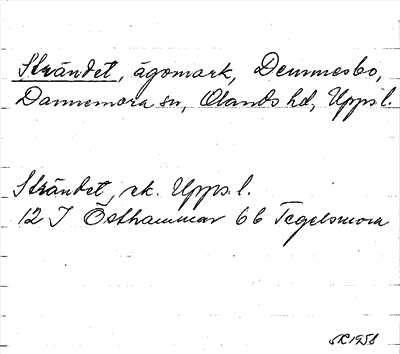 Strändet, ägomark, Demmesbo,
Dannemora sn, Olands hd, Upps l.
Strändet, ek. Upps. l.
12 I Östhammar 6 b Tegelsmora
1958